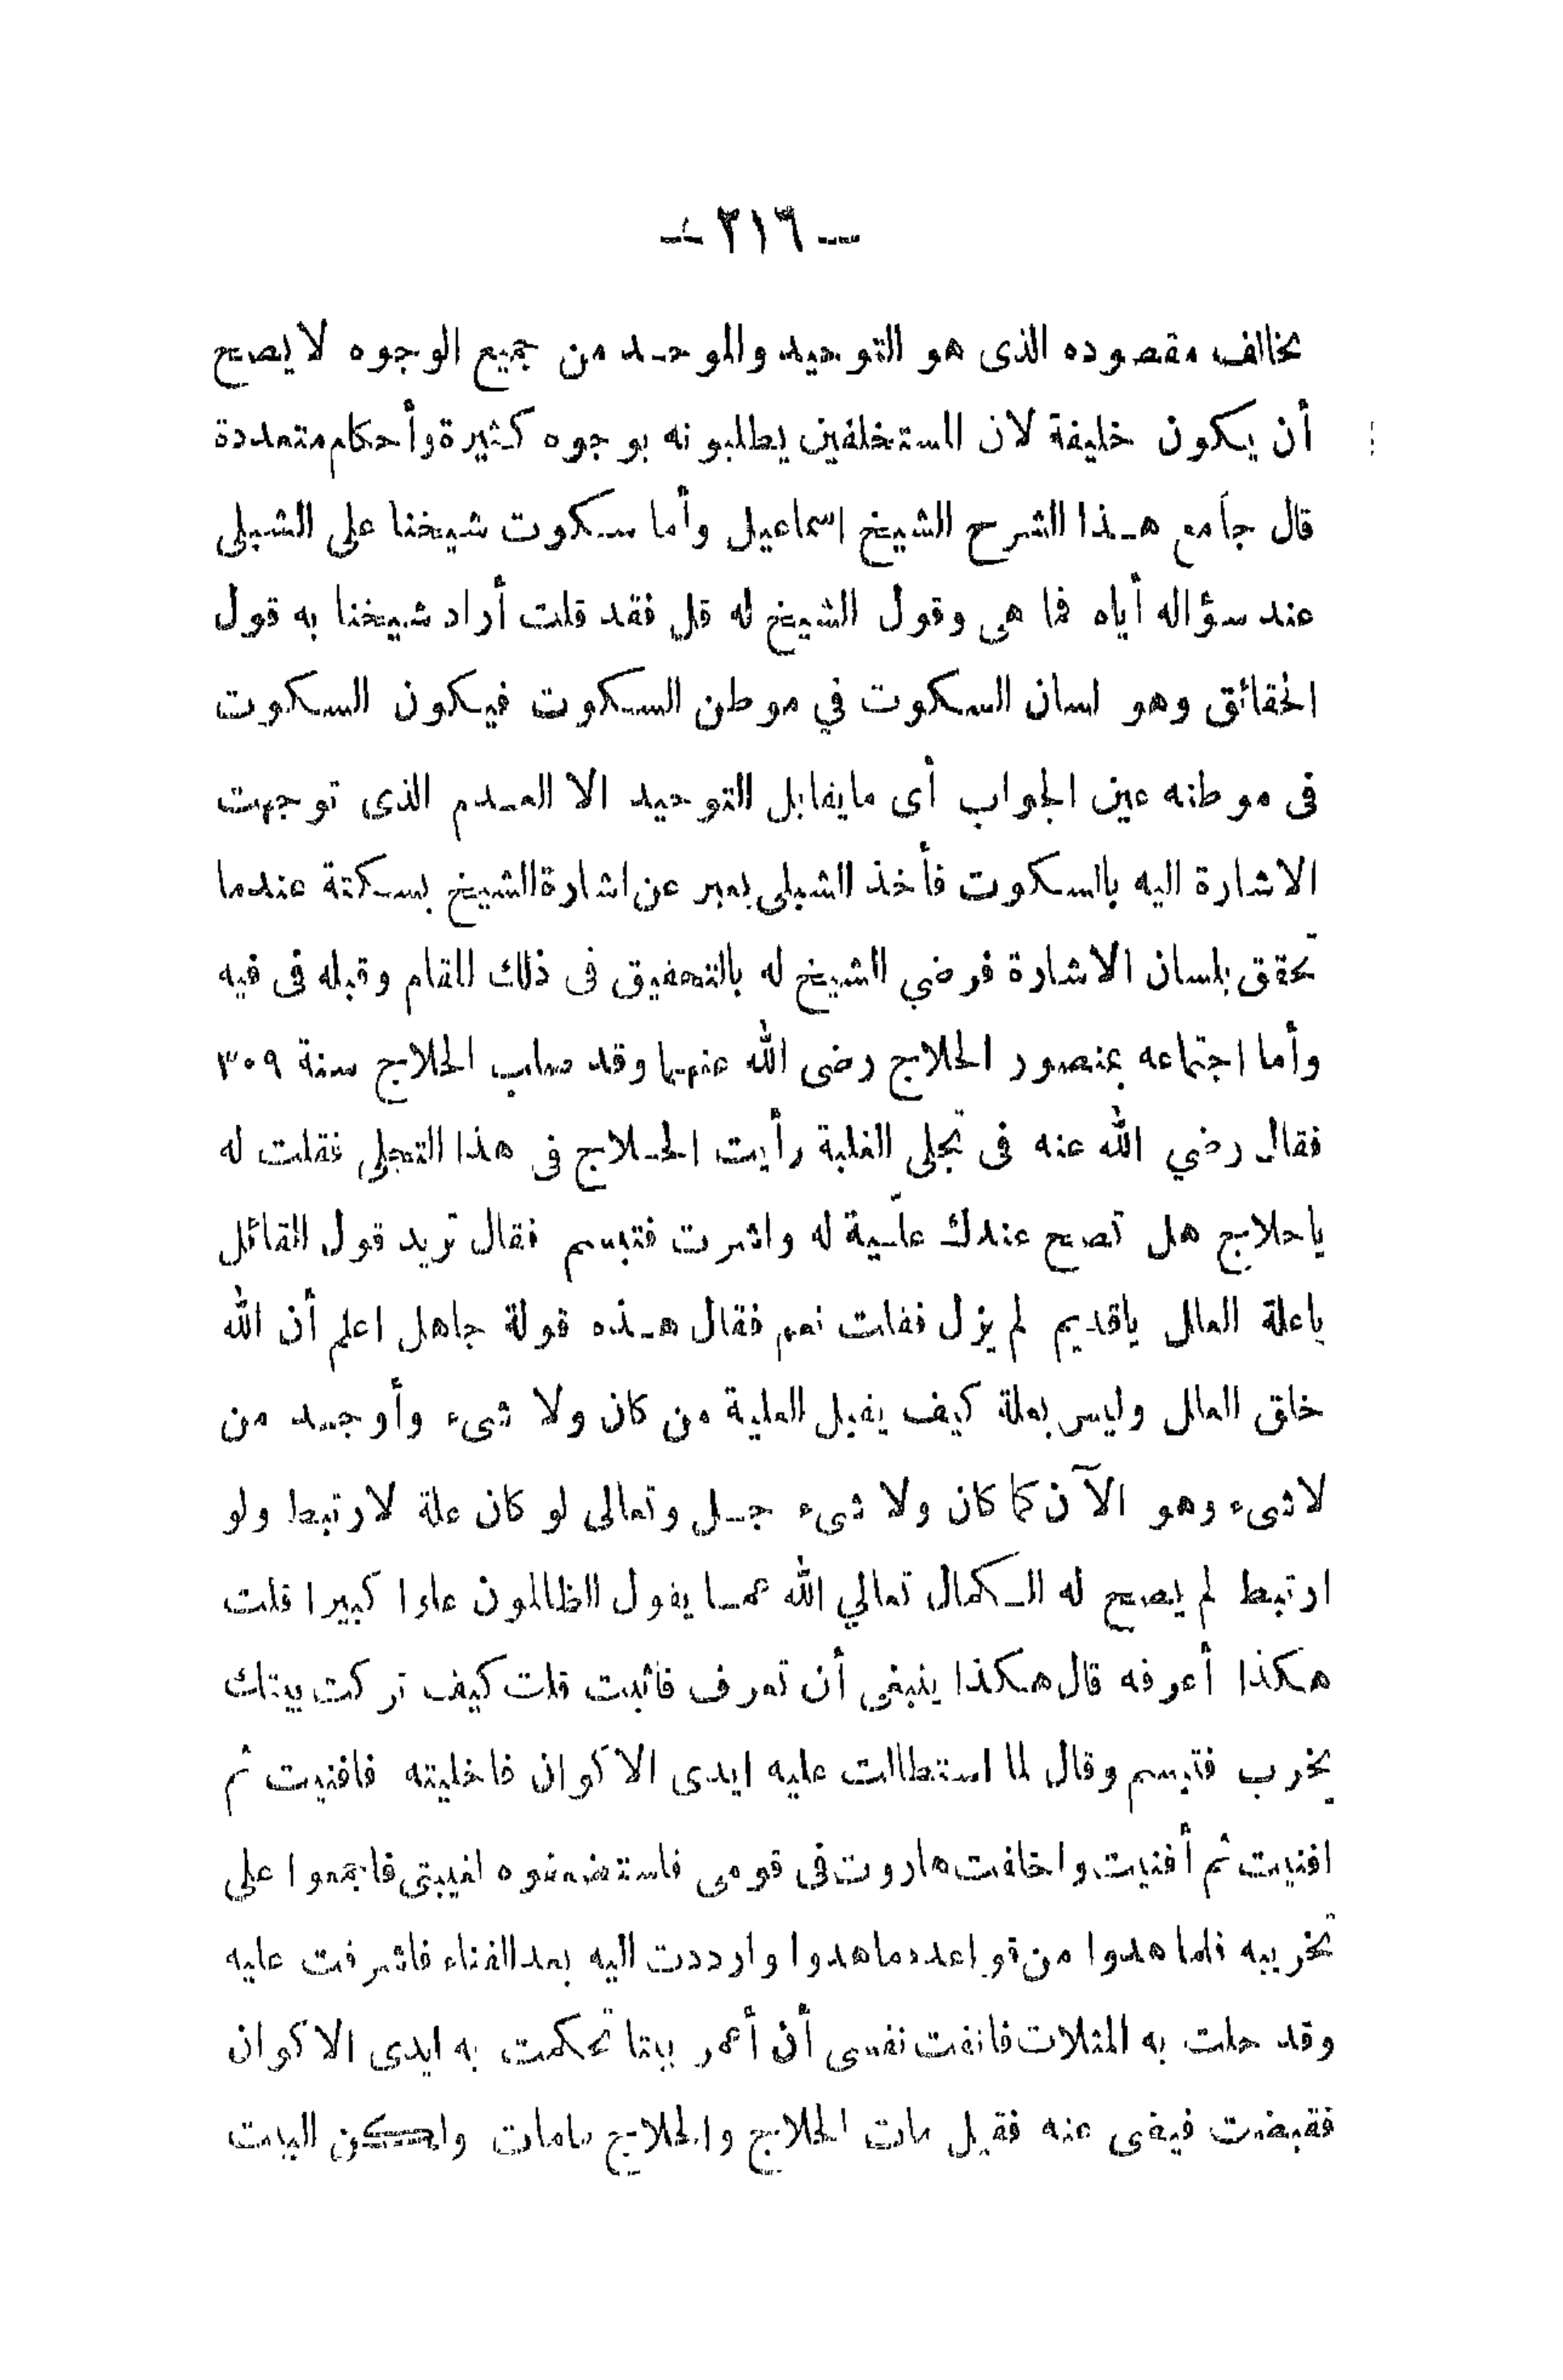 — ٢١٦ —
يخالف مقصوده الذى هو التوحيد والموحد من جميع الوجوه لا يصح
أن يكون خليفة لان المستخلفين يطلبونه بوجوه كثيرة وأحكام متعددة
قال جامع هذا الشرح الشيخ اسماعيل وأما سكوت شيخنا على الشبلى
عند سؤاله أياه فما هى وقول الشيخ له قل فقد قلت أراد شيخنا به قول
الحقائق وهو لسان السكوت في موطن السكوت فيكون السكوت
فى موطنه عين الجواب أى مايقابل التوحيد الا العدم الذى توجهت
الاشارة اليه بالسكوت فأخذ الشبلى يعبر عن اشارة الشيخ بسكتة عندما
تحقق بلسان الاشارة فرضي الشيخ له بالتصفيق فى ذلك المقام وقبله فى فيه
وأما اجتماعه بمنصور الحلاج رضى الله عنهما وقد صلب الحلاج سنة ٣٠٩
فقال رضي الله عنه فى تجلى الغلبة رأيت الحلاج فى هذا التجلى فقلت له
ياحلاج هل تصح عندك علية له واشرت فتبسم فقال تريد قول القائل
ياعلة العلل ياقديم لم يزل فقلت نعم فقال هذه قولة جاهل اعلم أن الله
خلق العلل وليس بعلة كيف يقبل العلية من كان ولا شىء وأوجد من
لاشىء وهو الآن كما كان ولا شىء جل وتعالى لو كان علة لارتبط ولو
ارتبط لم يصح له الكمال تعالي الله عما يقول الظالمون علوا كبيرا قلت
هكذا أعرفه قال هكذا ينبغى أن تعرف فاثبت قلت كيف تركت بيتك
يخرب فتبسم وقال لما استطالت عليه ايدى الاكوان فاخليته فافنيت ثم
افنيت ثم أفنيت واخلفت هاروت فى قومى فاستضعفوه لغيبتى فاجمعوا على
تخريبه فلما هدوا من قواعده ماهدوا وارددت اليه بعد الفناء فاشرفت عليه
وقد حلت به المثلات فانفت نفسى أن أعمر بيتا تحكمت به ايدى الاكوان
فقبضت فيفى عنه فقيل مات الحلاج والحلاج مامات ولكن البيت